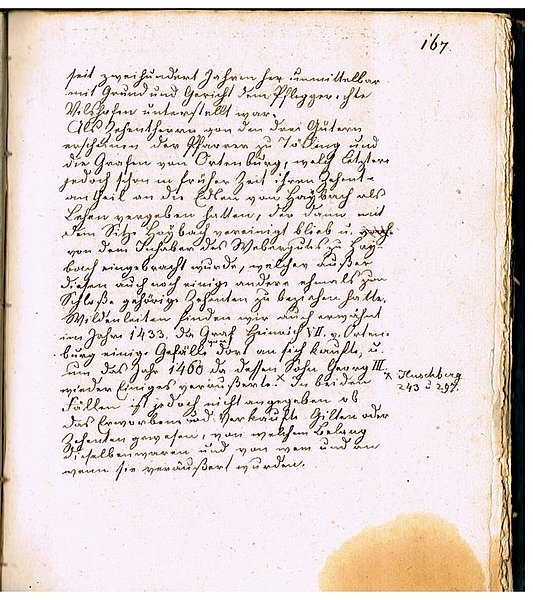 167.
seit zweihundert Jahren her unmittelbar
mit Grund und Gericht dem Pfleggerichte
Vilshofen unterstellt war.
Als Zehentherrn von den drei Gütern
erscheinen der Pfarrer zu und
die Grafen von Ortenburg, welch letztere
jedoch schon in früher Zeit ihren Zehent-
antheil an die Edlen von Haybach als
Lehen vergeben hatten, der dann mit
dem Sitze Haybach vereinigt blieb u.
von dem Inhaber des Webergutes zu Hay-
bach eingebracht wurde, welcher außer
diesen auch noch einige andere ehmals zum
Schloße gehörige Zehenten zu beziehen hatte.
Wildenleiten finden wir auch erwähnt
im Jahre 1433, da Graf Heinrich VII. v. Orten-
burg einige Gefälle dort an sich kaufte, u.
um das Jahr 1460 da dessen Sohn Georg III.
wieder Einiges veräußerte. × In beiden
Fällen ist jedoch nicht angegeben ob
das Erworbene und Verkaufte Gilten oder
Zehenten gewesen, von welchem Belang
dieselben waren und von wem und an
wenn sie veräußert wurden.
× Huschberg
243 u 297.